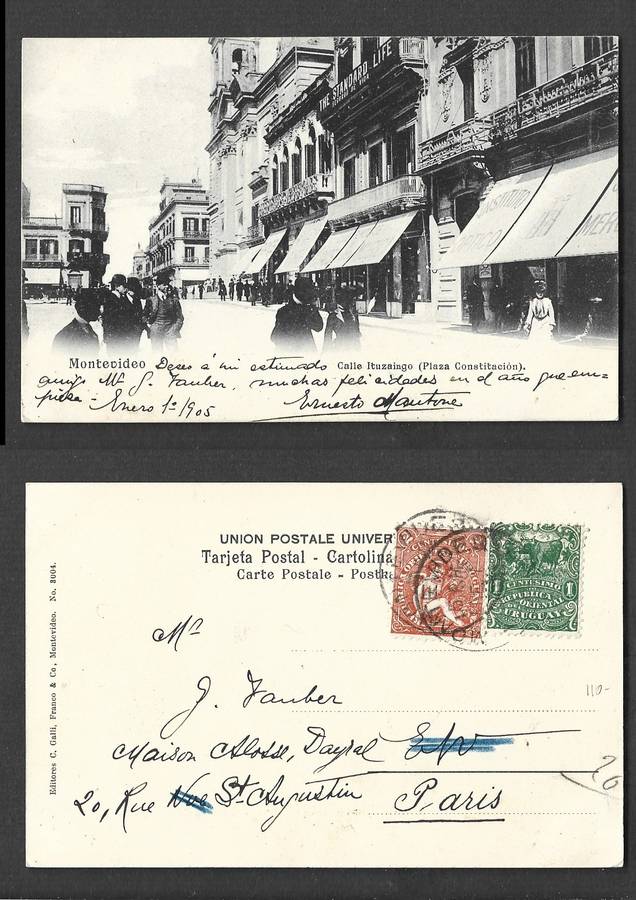 THE STANDARD LIFE
INSTITUTO
OPTICO
MER
Montevideo Deseo á mi estimado Calle Ituzaingo (Plaza Constitución).
amigo Mr J. Tauber, muchas felicidades en el año que em=
pieza - Enero 1º/905 Ernesto Mantone
UNION POSTALE UNIVER
Tarjeta Postal - Cartolina
Carte Postale - Postka
CENTESIMO
1 1
REPUBLICA
ORIENTAL
DEL
URUGUAY
MONTEVIDEO
Mr
J. Tauber
110-
Maison Alosse, Dayral E/V
20, Rue Nve St Augustin Paris
20
Editores C. Galli, Franco & Co, Montevideo. No. 3004.